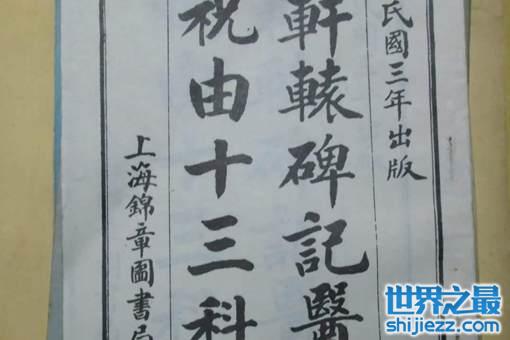 民國三年出版
軒轅碑記醫
祝由十三科
上海錦章圖書局
世界之最
shijiezz.com